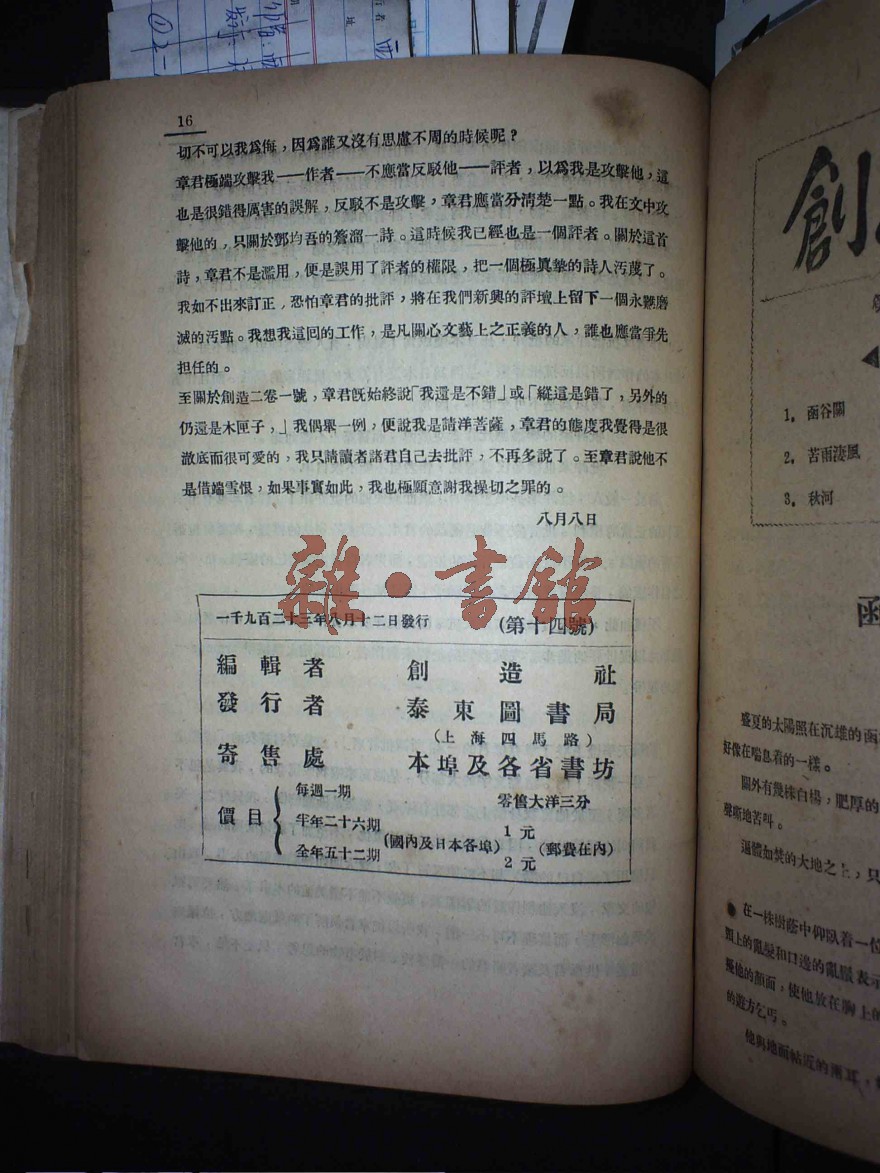 16
切不可以我爲侮，因爲誰又沒有思慮不周的時候呢？
章君極端攻擊我——作者——不應當反駁他——評者，以爲我是攻擊他，這
也是很錯得厲害的誤解，反駁不是攻擊，章君應當分清楚一點。我在文中攻
擊他的，只關於鄧均吾的簷溜一詩。這時候我已經也是一個評者。關於這首
詩，章君不是濫用，便是誤用了評者的權限，把一個極眞摯的詩人汚蔑了。
我如不出來訂正，恐怕章君的批評，將在我們新興的評壇上留下一個永難磨
滅的汚點。我想我這囘的工作，是凡關心文藝上之正義的人，誰也應當爭先
担任的。
至關於創造二卷一號，章君旣始終說「我還是不錯」或「縱這是錯了，另外的
仍還是木匣子，」我偶舉一例，便說我是請洋菩薩，章君的態度我覺得是很
澈底而很可愛的，我只請讀者諸君自己去批評，不再多說了。至章君說他不
是借端雪恨，如果事實如此，我也極願意謝我操切之罪的。
八月八日
雜·書館
一千九百二十三年八月十二日發行 (第十四號)
編輯者 創造社
發行者 泰東圖書局
(上海四馬路)
寄售處 本埠及各省書坊
價目
每週一期 零售大洋三分
半年二十六期 1 元
(國內及日本各埠) (郵費在內)
全年五十二期 2 元
創
1. 函谷關
2. 苦雨淒風
3. 秋河
函
盛夏的太陽照在沉雄的函
好像在喘息着的一樣。
關外有幾株白楊，肥厚的
聲嘶地苦呌。
遍體如焚的大地之上，只
在一株樹蔭中仰臥着一位
頭上的亂髮和口邊的亂鬍表示
擾他的顏面，使他放在胸上的
的遊方乞丐。
他與地面帖近的兩耳，